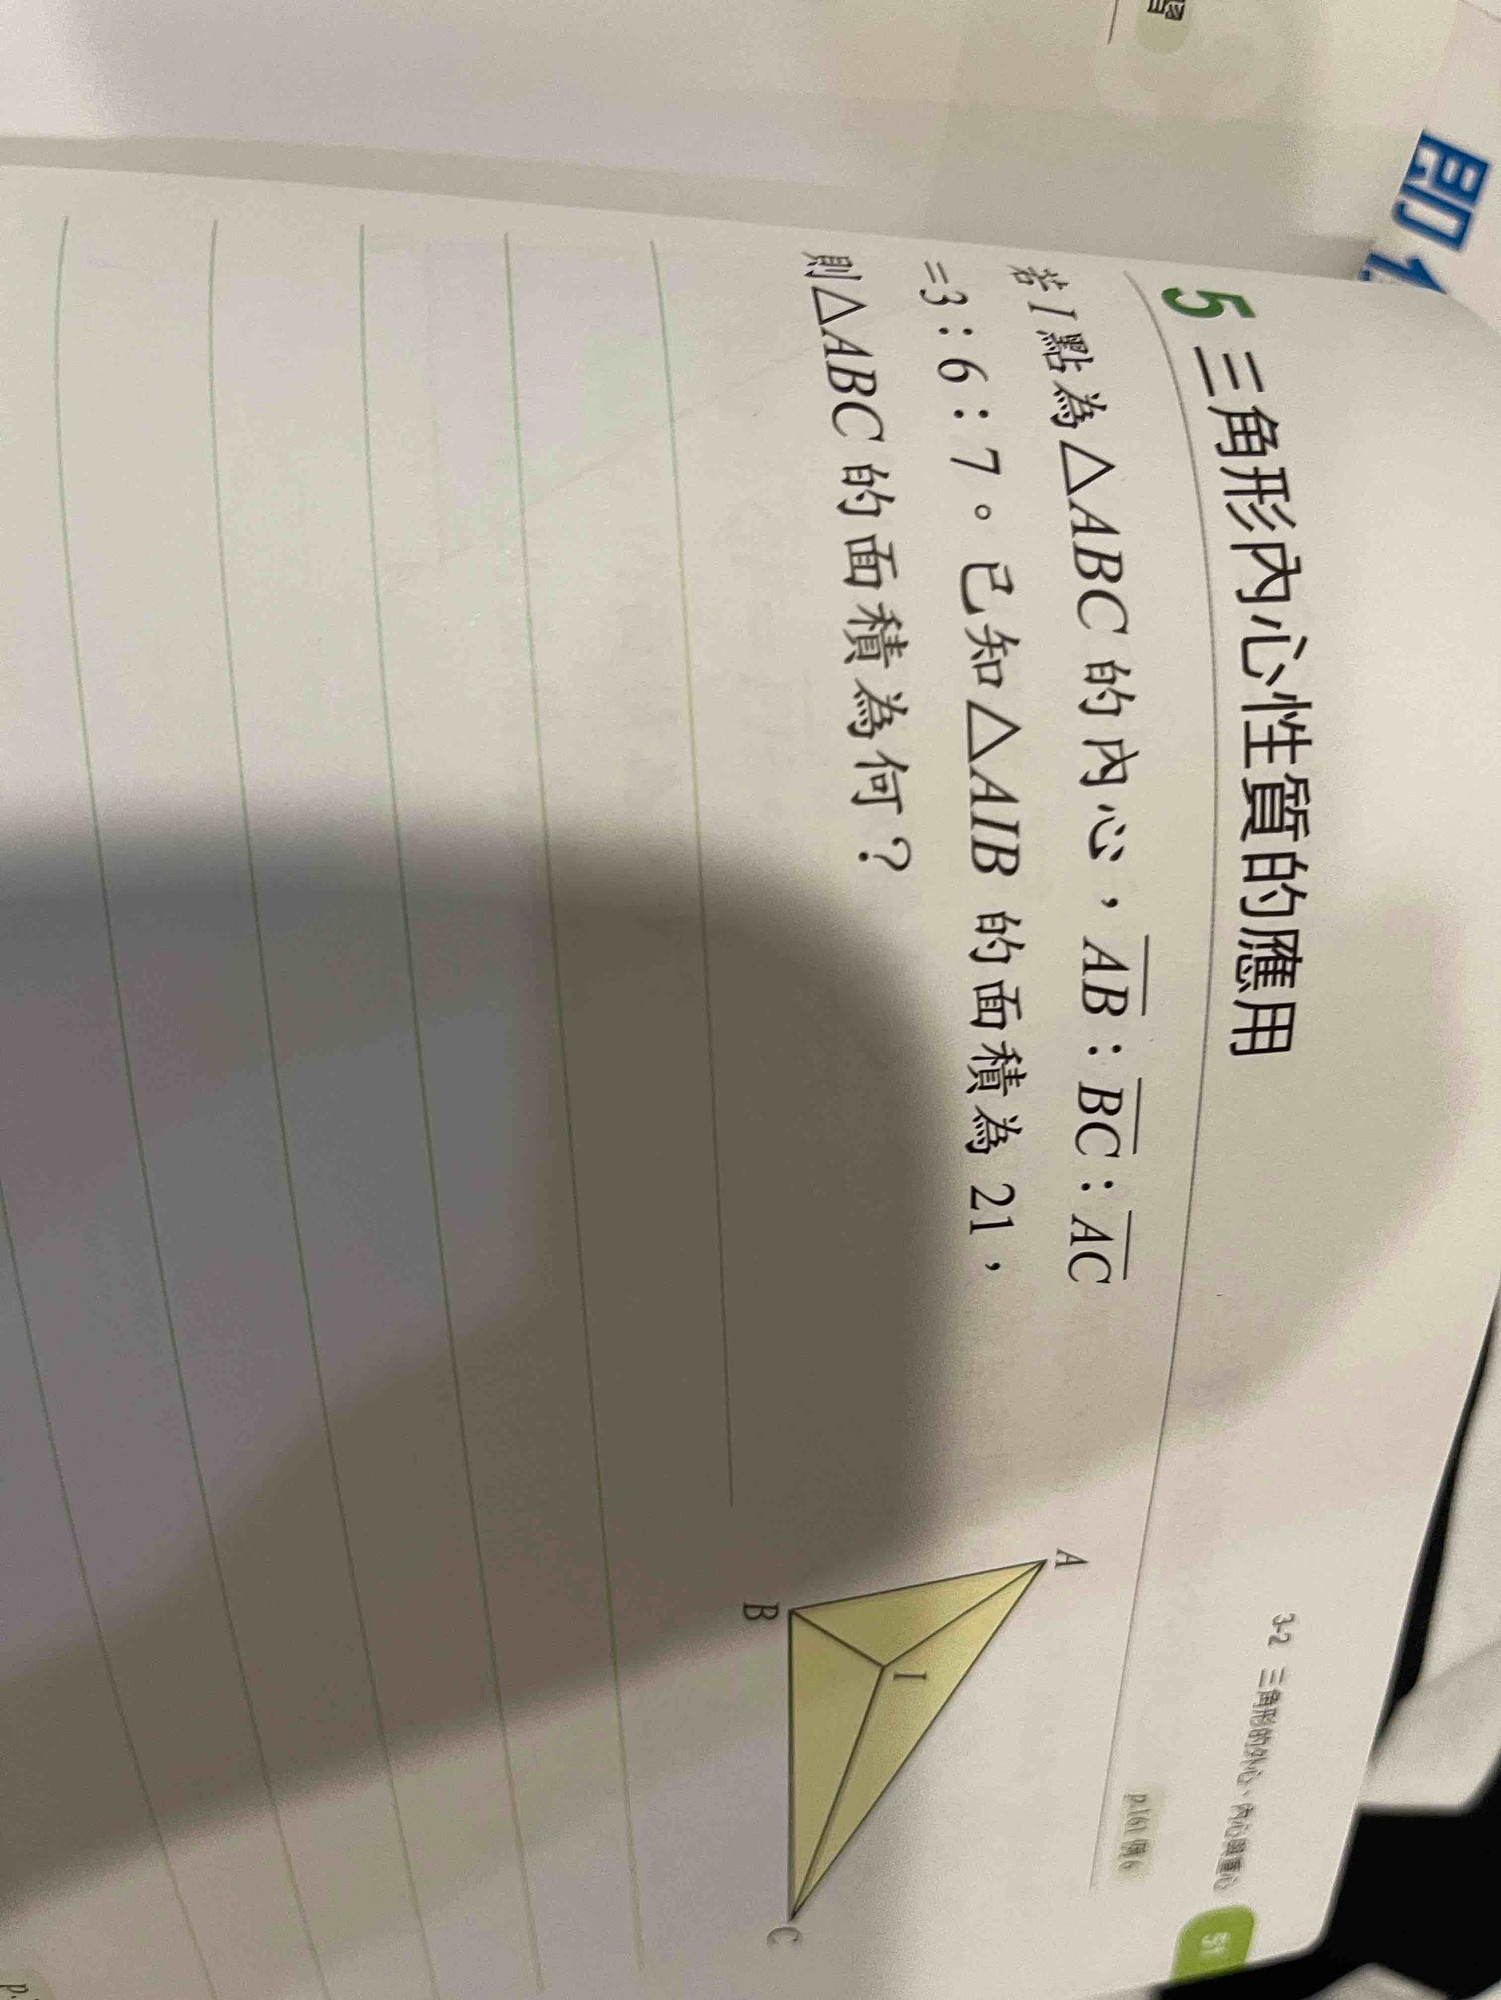 3-2 三角形的外心、內心與重心 51
5 三角形內心性質的應用
p.161 例6
若I點為△ABC的內心，AB：BC：AC
=3：6：7。已知△AIB的面積為21，
則△ABC的面積為何？
A
I
B
C
即
習
p.